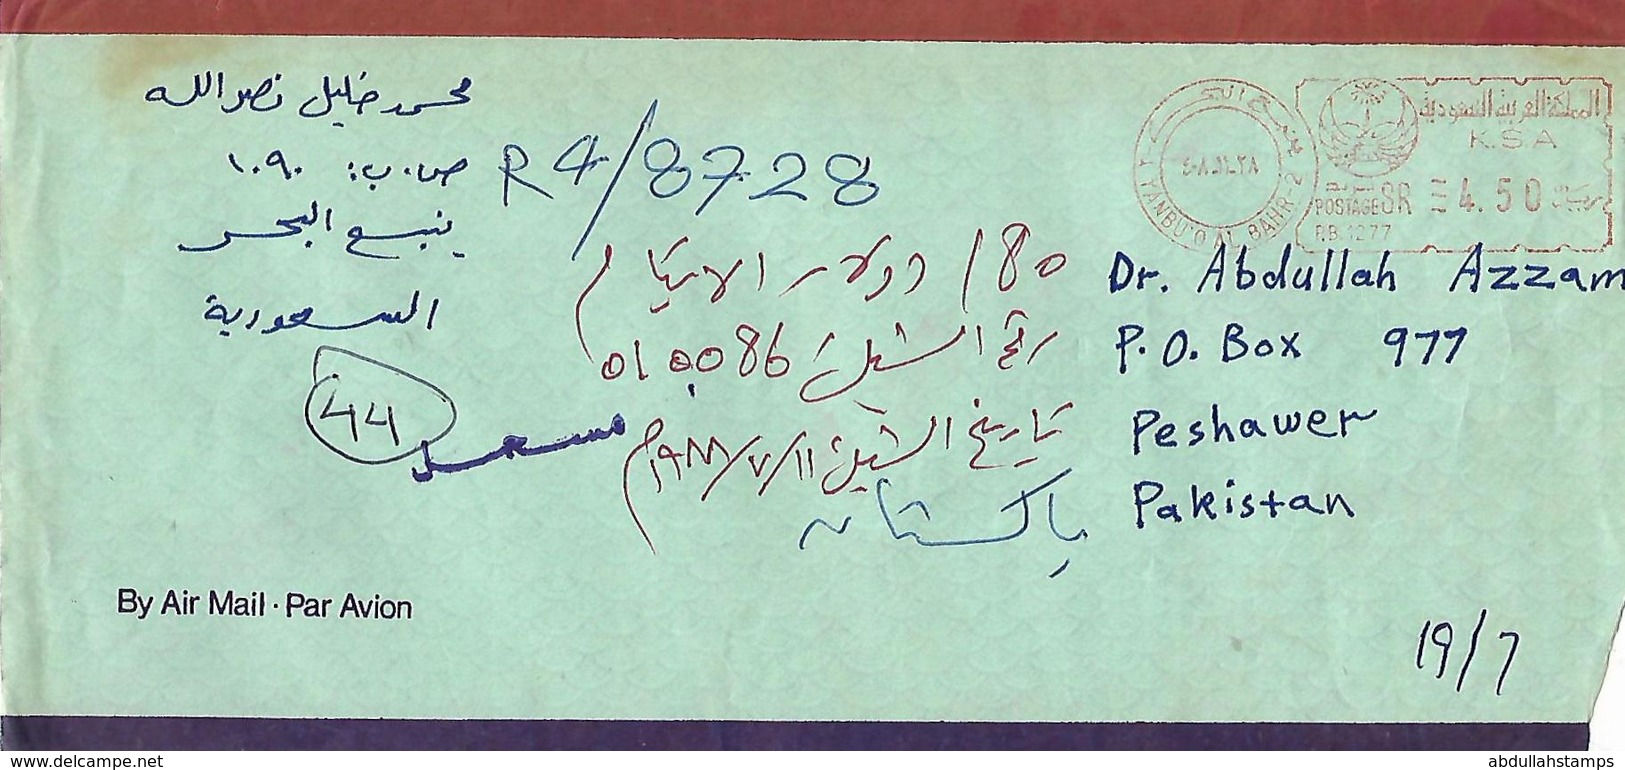 محمد خليل نصر الله
ص.ب: ١٠٩٠
ينبع البحر
السعودية
R 4/8728
المملكة العربية السعودية
K.S.A
POSTAGE SR 4.50
P.B.1277
YANBU'O AL BAHR 2
80/ دولار
رقم الشيك: 010086
تاريخ الشيك: ١٩٨٨/٧/١١م
مسجل
44
Dr. Abdullah Azzam
P.O. Box 977
Peshawer
Pakistan
باكستان
By Air Mail · Par Avion
19/7
www.delcampe.net
abdullahstamps